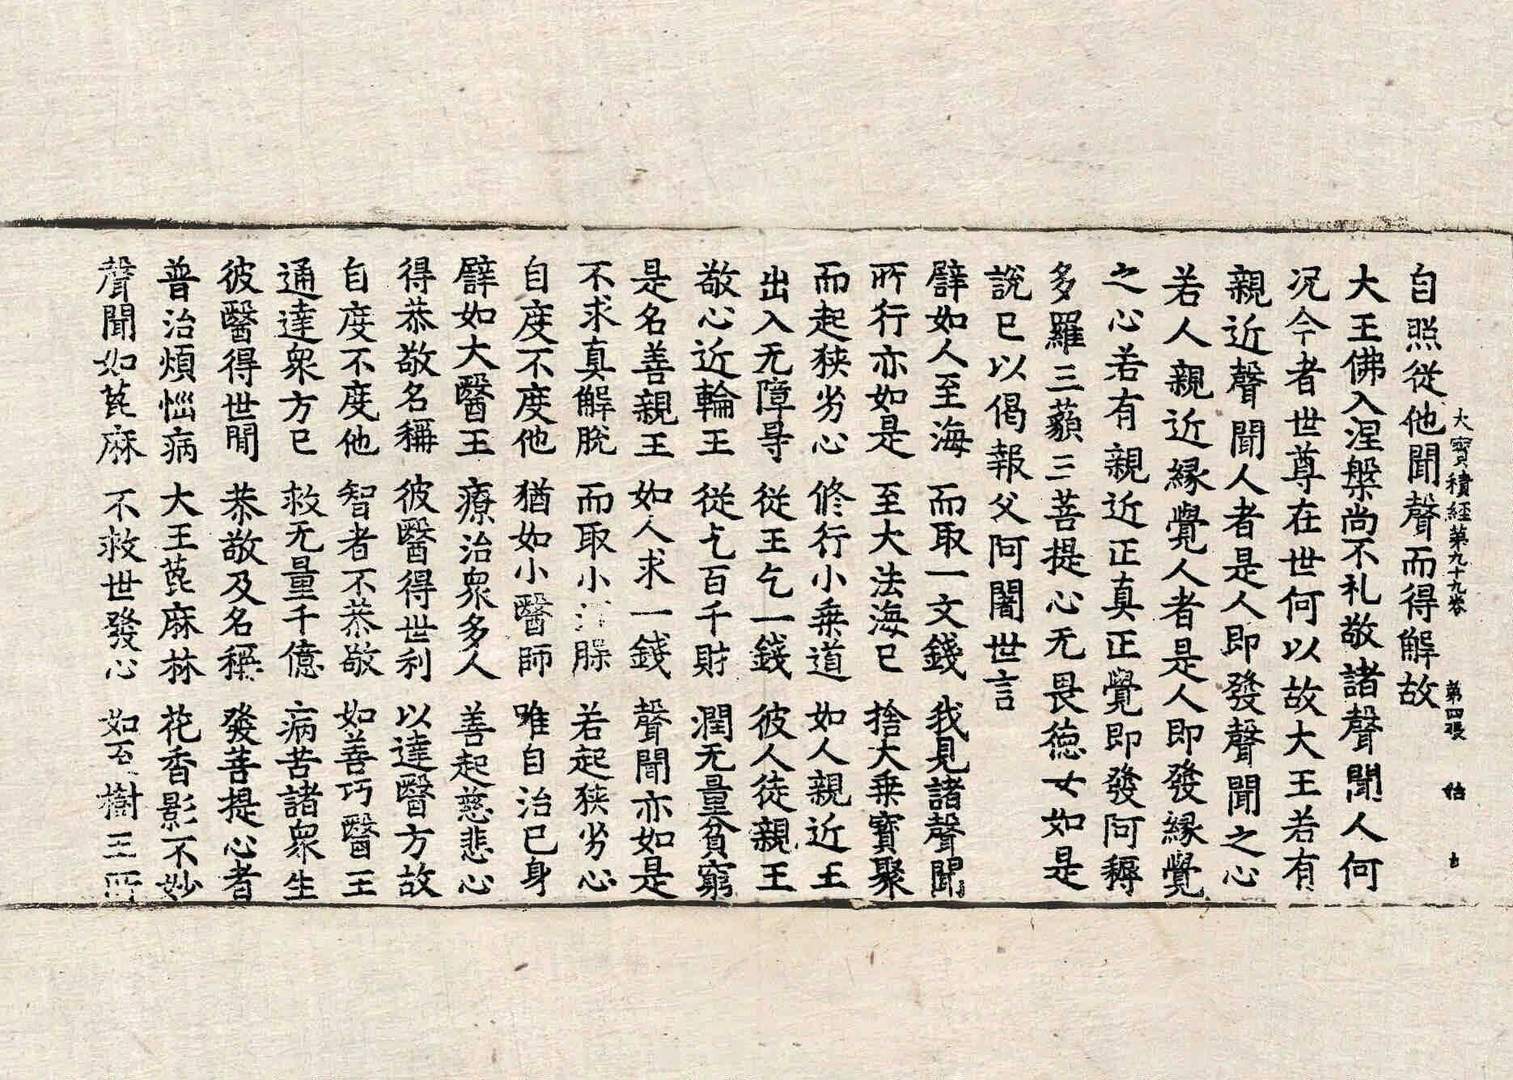 大寶積經第九十九卷　第四張
自照從他聞聲而得解故
大王佛入涅槃尚不礼敬諸聲聞人何
況今者世尊在世何以故大王若有
親近聲聞人者是人即發聲聞之心
若人親近緣覺人者是人即發緣覺
之心若有親近正真正覺即發阿耨
多羅三藐三菩提心无畏德女如是
說已以偈報父阿闍世言
譬如人至海　而取一文錢　我見諸聲聞
所行亦如是　至大法海已　捨大乗寶聚
而起狹劣心　修行小乗道　如人親近王
出入无障㝵　從王乞一錢　彼人徒親王
敬心近輪王　從乞百千財　潤无量貧窮
是名善親王　如人求一錢　聲聞亦如是
不求真解脫　而取小　若起狹劣心
自度不度他　猶如小醫師　唯自治已身
譬如大醫王　療治衆多人　善起慈悲心
得恭敬名稱　彼醫得世利　以達醫方故
自度不度他　智者不恭敬　如善巧醫王
通達衆方已　救无量千億　病苦諸衆生
彼醫得世間　恭敬及名稱　發菩提心者
普治煩惱病　大王萞麻林　花香影不妙
聲聞如萞麻　不救世發心　如　樹王